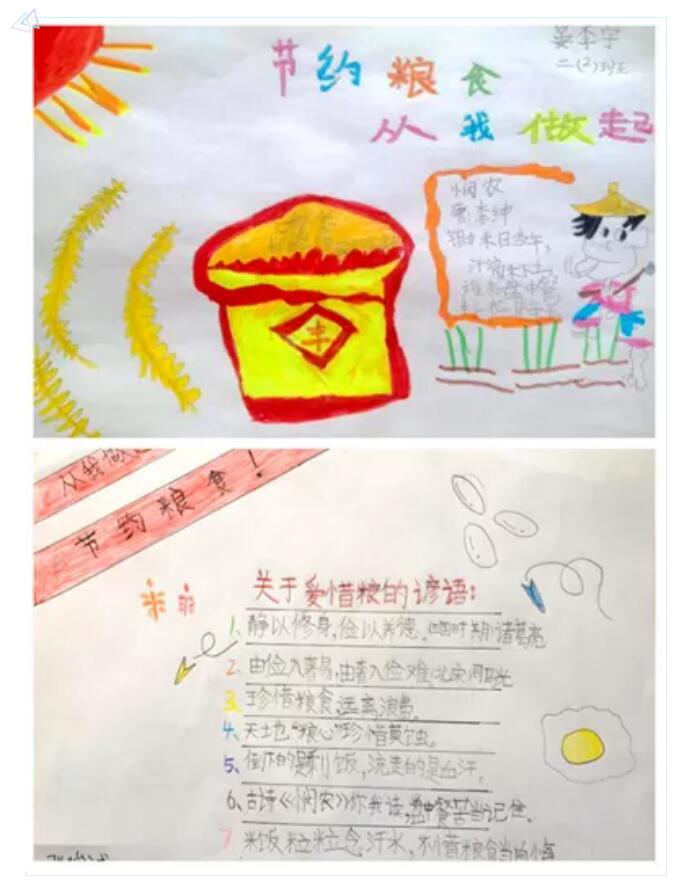 节约粮食
二(2)班
从我做起
悯农
唐:李绅
锄禾日当午,
汗滴禾下土。
谁知盘中餐
丰
从我做
节约粮食!
关于爱惜粮的谚语:
1、静以修身,俭以养德。诸葛亮
2. 由俭入奢易,由奢入俭难.北宋司马光
3. 珍惜粮食,远离浪费。
4、天地“粮心”珍惜莫蚀。
5、倒下的是剩饭,流走的是血汗。
6、古诗《悯农》你我读,盘中餐苦当记住.
7. 米饭粒粒念汗水,不惜粮食当